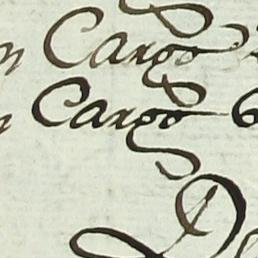 n Cargo
n Cargo 6
D